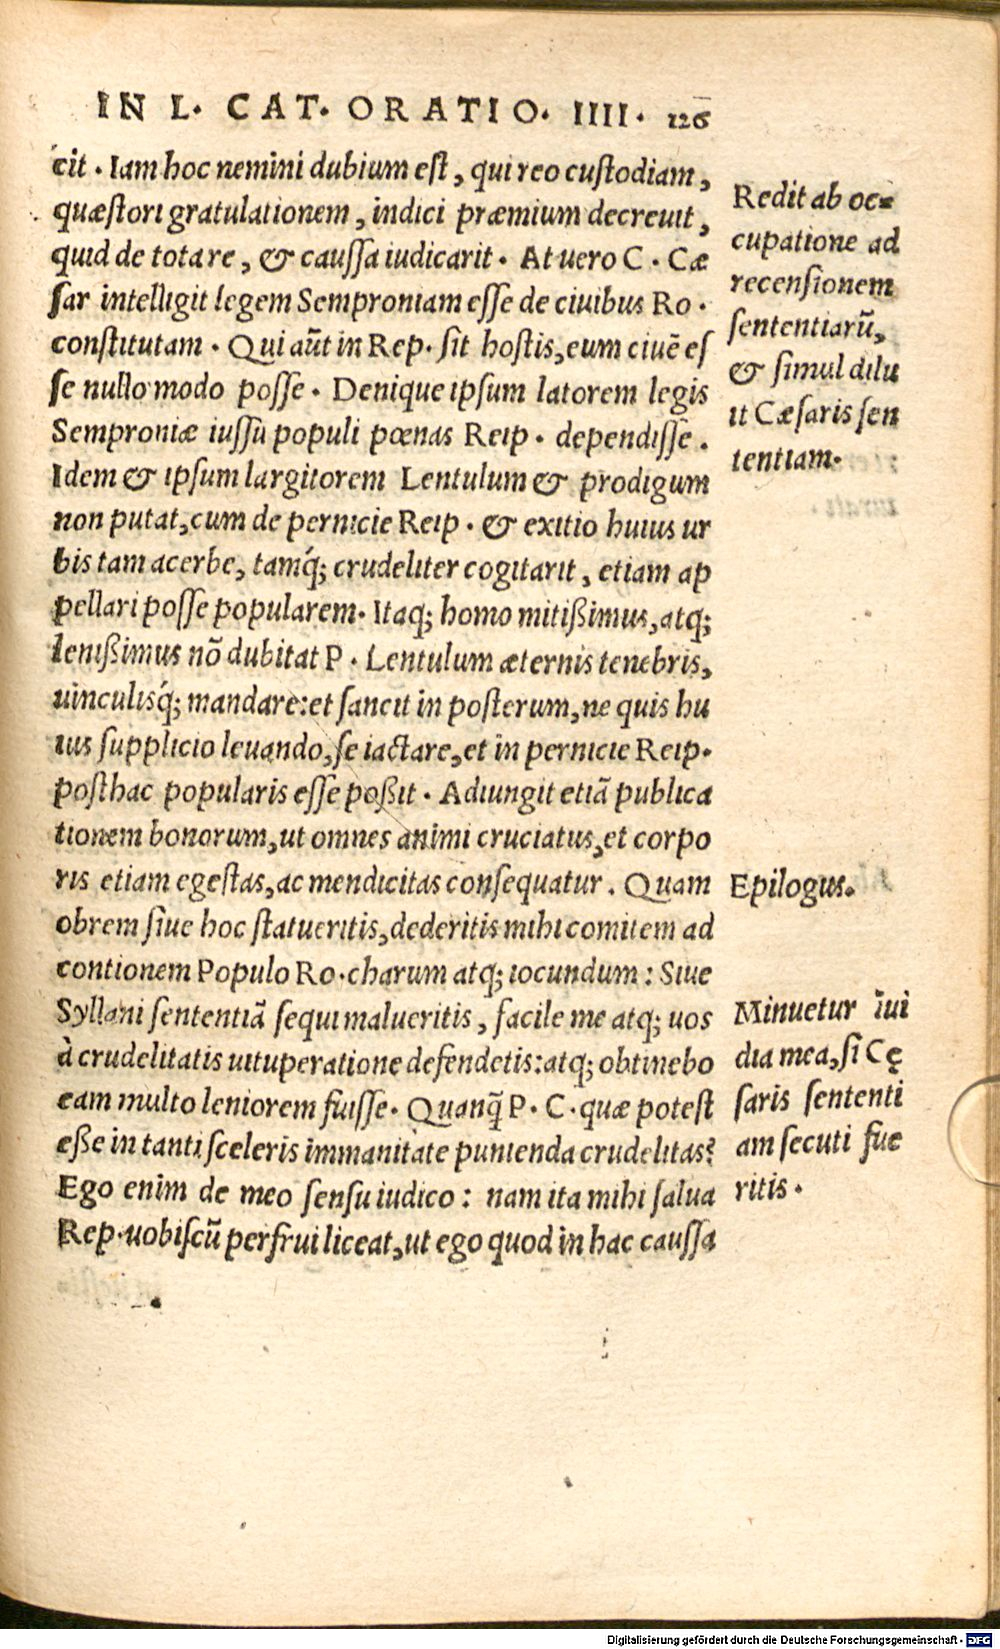 IN L. CAT. ORATIO. IIII. 126
cit. Iam hoc nemini dubium est, qui reo custodiam,
quæstori gratulationem, indici præmium decreuit,
quid de tota re, & caussa iudicarit. At uero C. Cæ
sar intelligit legem Semproniam esse de ciuibus Ro.
constitutam. Qui aūt in Rep. sit hostis, eum ciuē es
se nullo modo posse. Denique ipsum latorem legis
Semproniæ iussu populi pœnas Reip. dependisse.
Idem & ipsum largitorem Lentulum & prodigum
non putat, cum de pernicie Reip. & exitio huius ur
bis tam acerbe, tamq́; crudeliter cogitarit, etiam ap
pellari posse popularem. Itaq; homo mitißimus, atq;
lenißimus nō dubitat P. Lentulum æternis tenebris,
uinculisq́; mandare: et sancit in posterum, ne quis hu
ius supplicio leuando, se iactare, et in pernicie Reip.
posthac popularis esse poßit. Adiungit etiā publica
tionem bonorum, ut omnes animi cruciatus, et corpo
ris etiam egestas, ac mendicitas consequatur. Quam
obrem siue hoc statueritis, dederitis mihi comitem ad
contionem Populo Ro. charum atq; iocundum: Siue
Syllani sententiā sequi malueritis, facile me atq; uos
à crudelitatis uituperatione defendetis: atq; obtinebo
eam multo leniorem fuisse. Quanq̄ P. C. quæ potest
eße in tanti sceleris immanitate punienda crudelitas?
Ego enim de meo sensu iudico: nam ita mihi salua
Rep. uobiscū perfrui liceat, ut ego quod in hac caussa
Redit ab oc=
cupatione ad
recensionem
sententiarū,
& simul dilu
it Cæsaris sen
tentiam.
Epilogus.
Minuetur īui
dia mea, si Cę
saris sententi
am secuti fue
ritis.
Digitalisierung gefördert durch die Deutsche Forschungsgemeinschaft - DFG